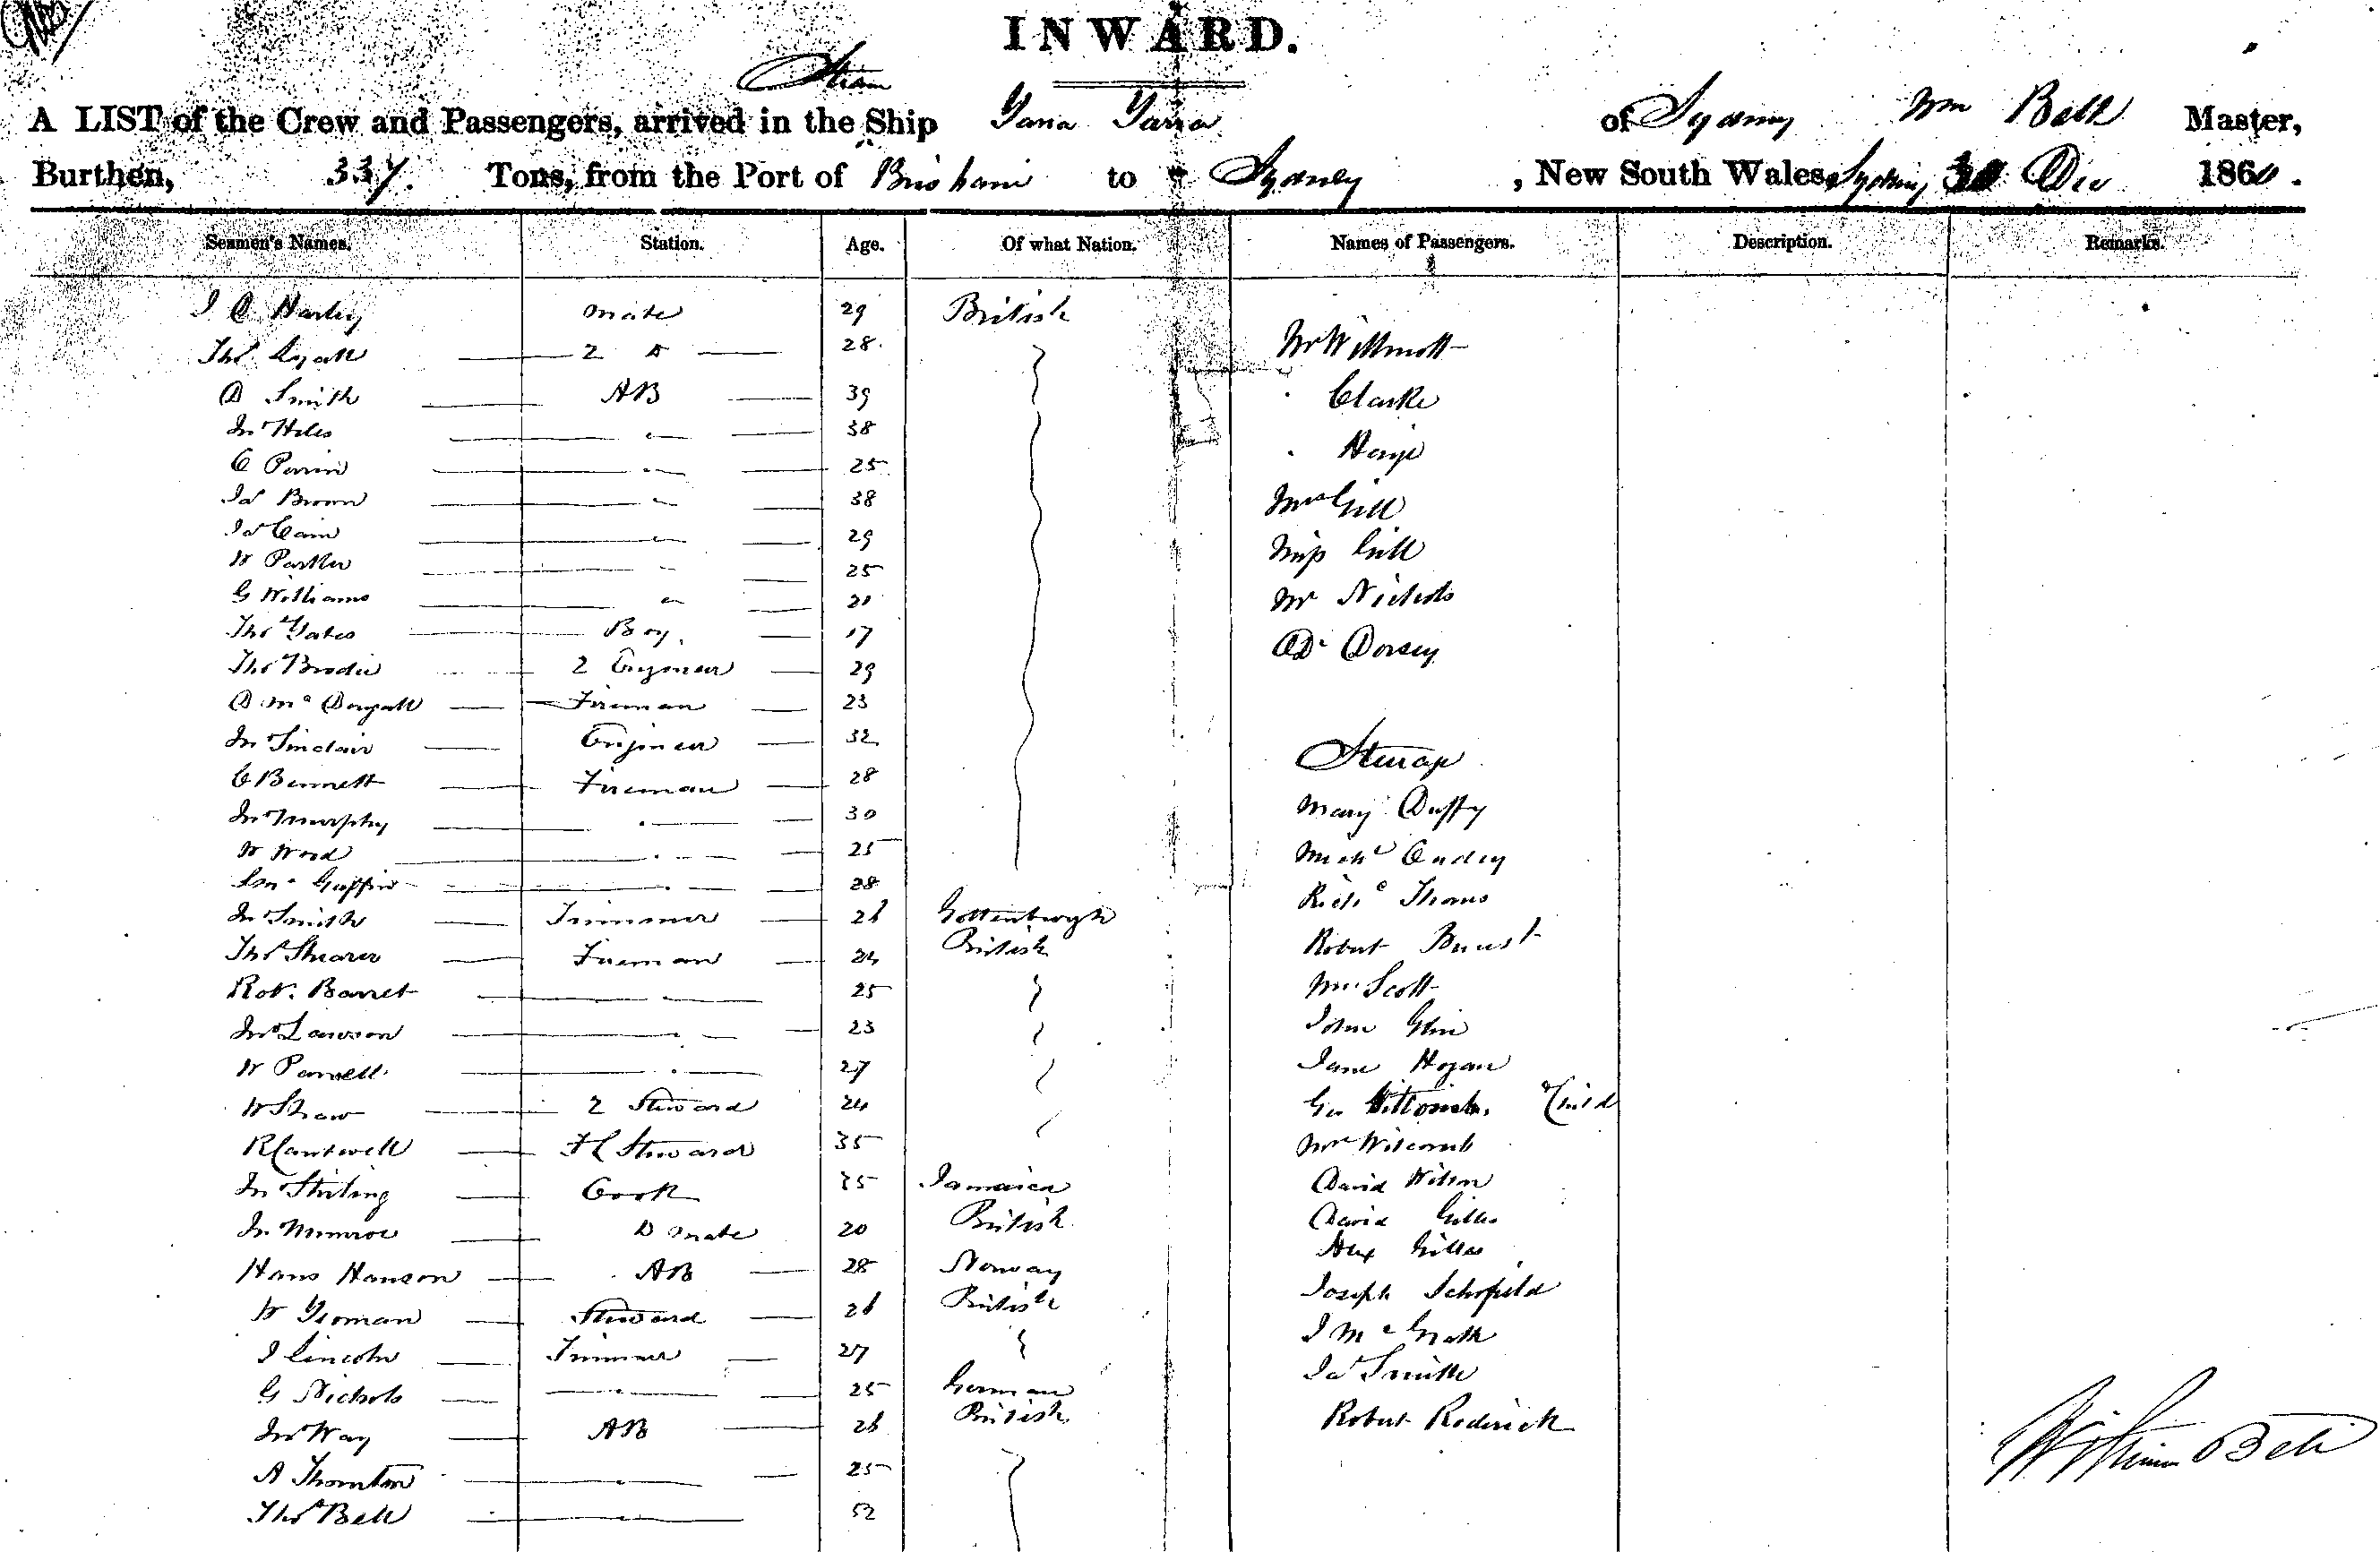 INWARD.
Steam
A LIST of the Crew and Passengers, arrived in the Ship Yarra Yarra of Sydney Wm Bell Master,
Burthen, 337. Tons, from the Port of Brisbane to Sydney, New South Wales, Sydney Dec 1860.
Seamen's Names. Station. Age. Of what Nation. Names of Passengers. Description. Remarks.
Harley Mate 29 British
Thos Lyall 2 Do 28. Mr Willmott
D Smith AB 39 Clarke
Jn Hiles " 38
C Perrin " 25
Jas Brown " 38 Mrs Gill
Jas Cain " 29 Miss Gill
W Parker " 25
G Williams " 21 Mr Nichols
Thos Yates Boy. 17 Dr Dorsey
Thos Brodie 2 Engineer 29
D McDougall Fireman 23
Jn Sinclair Engineer 32 Steerage
C Bennett Fireman 28
Jn Murphy " 30 Mary Duffy
W Wood " 25 Michl
" 28 Richd
Jn Smith Trimmer 26 Gottenburgh
Thos Shearer Fireman 24 British Robert
Robt. Barret " 25 Scott
Jn Lawson " 23 John
W Parnell " 27 Jane Hogan
W Shaw 2 Steward 24 Geo Child
R Cantwell Steward 35 Wilcomb
Jn Stirling Cook 35 Jamaica David Wilson
Jn Munroe Do Mate 20 British David Gillies
Hans Hanson AB 28 Norway Alex Gillies
W Yeoman Steward 26 British Joseph Schofield
J Lincoln Trimmer 27 J McGrath
G Nichols " 25 German Jas Smith
Jn Way AB 26 British Robert Roderick
A Thornton " 25
Thos Bell " 52
William Bell